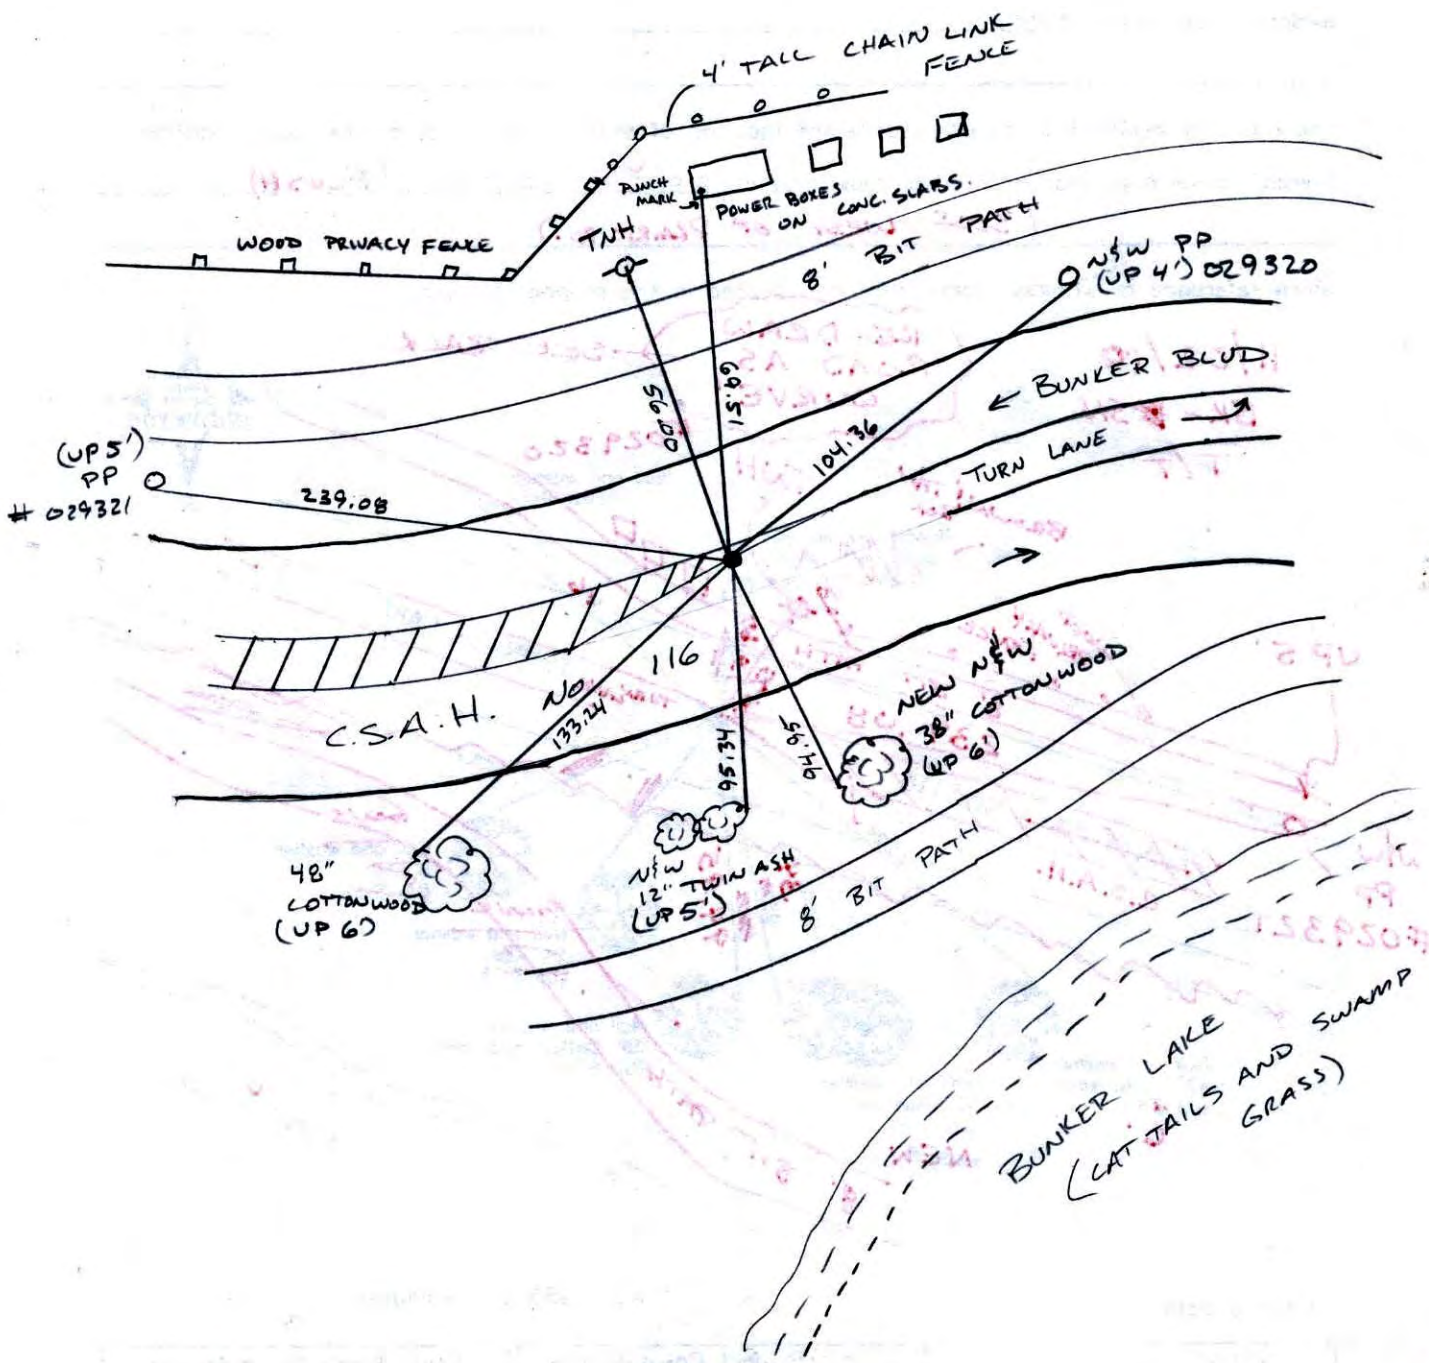 4' TALL CHAIN LINK
FENCE
PUNCH
MARK
POWER BOXES
ON CONC. SLABS.
WOOD PRIVACY FENCE
TNH
8' BIT PATH
N&W PP
(UP 4') 029320
← BUNKER BLVD
TURN LANE
56.00
69.51
104.36
(UP 5')
PP
# 029321
239.08
C.S.A.H. NO. 116
133.24
95.34
94.95
NEW N&W
38" COTTONWOOD
(UP 6')
48"
COTTONWOOD
(UP 6')
N&W
12" TWIN ASH
(UP 5')
8' BIT PATH
BUNKER LAKE
(CAT TAILS AND SWAMP
GRASS)